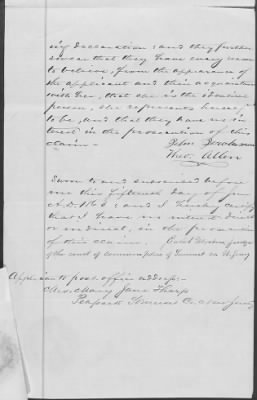 ing declaration: and they further
swear that they have every reason
to believe, from the appearance of
the applicant and their acquaintance
with her, that she is the identical
person, she represents herself
to be, and that they have no in
terest in the prosecution of this
claim—
John
Theo. Allen
Sworn to and subscribed before
me this fifteenth day of
A.D. 186 : and I hereby certify
that I have no interest direct
or indirect, in the prosecution
of this claim. judge
of the court of common pleas of Somerset co N. Jersey
Applicants post office address:—
Mrs. Mary Jane Tharp
Peapack Somerset Co. New Jersey